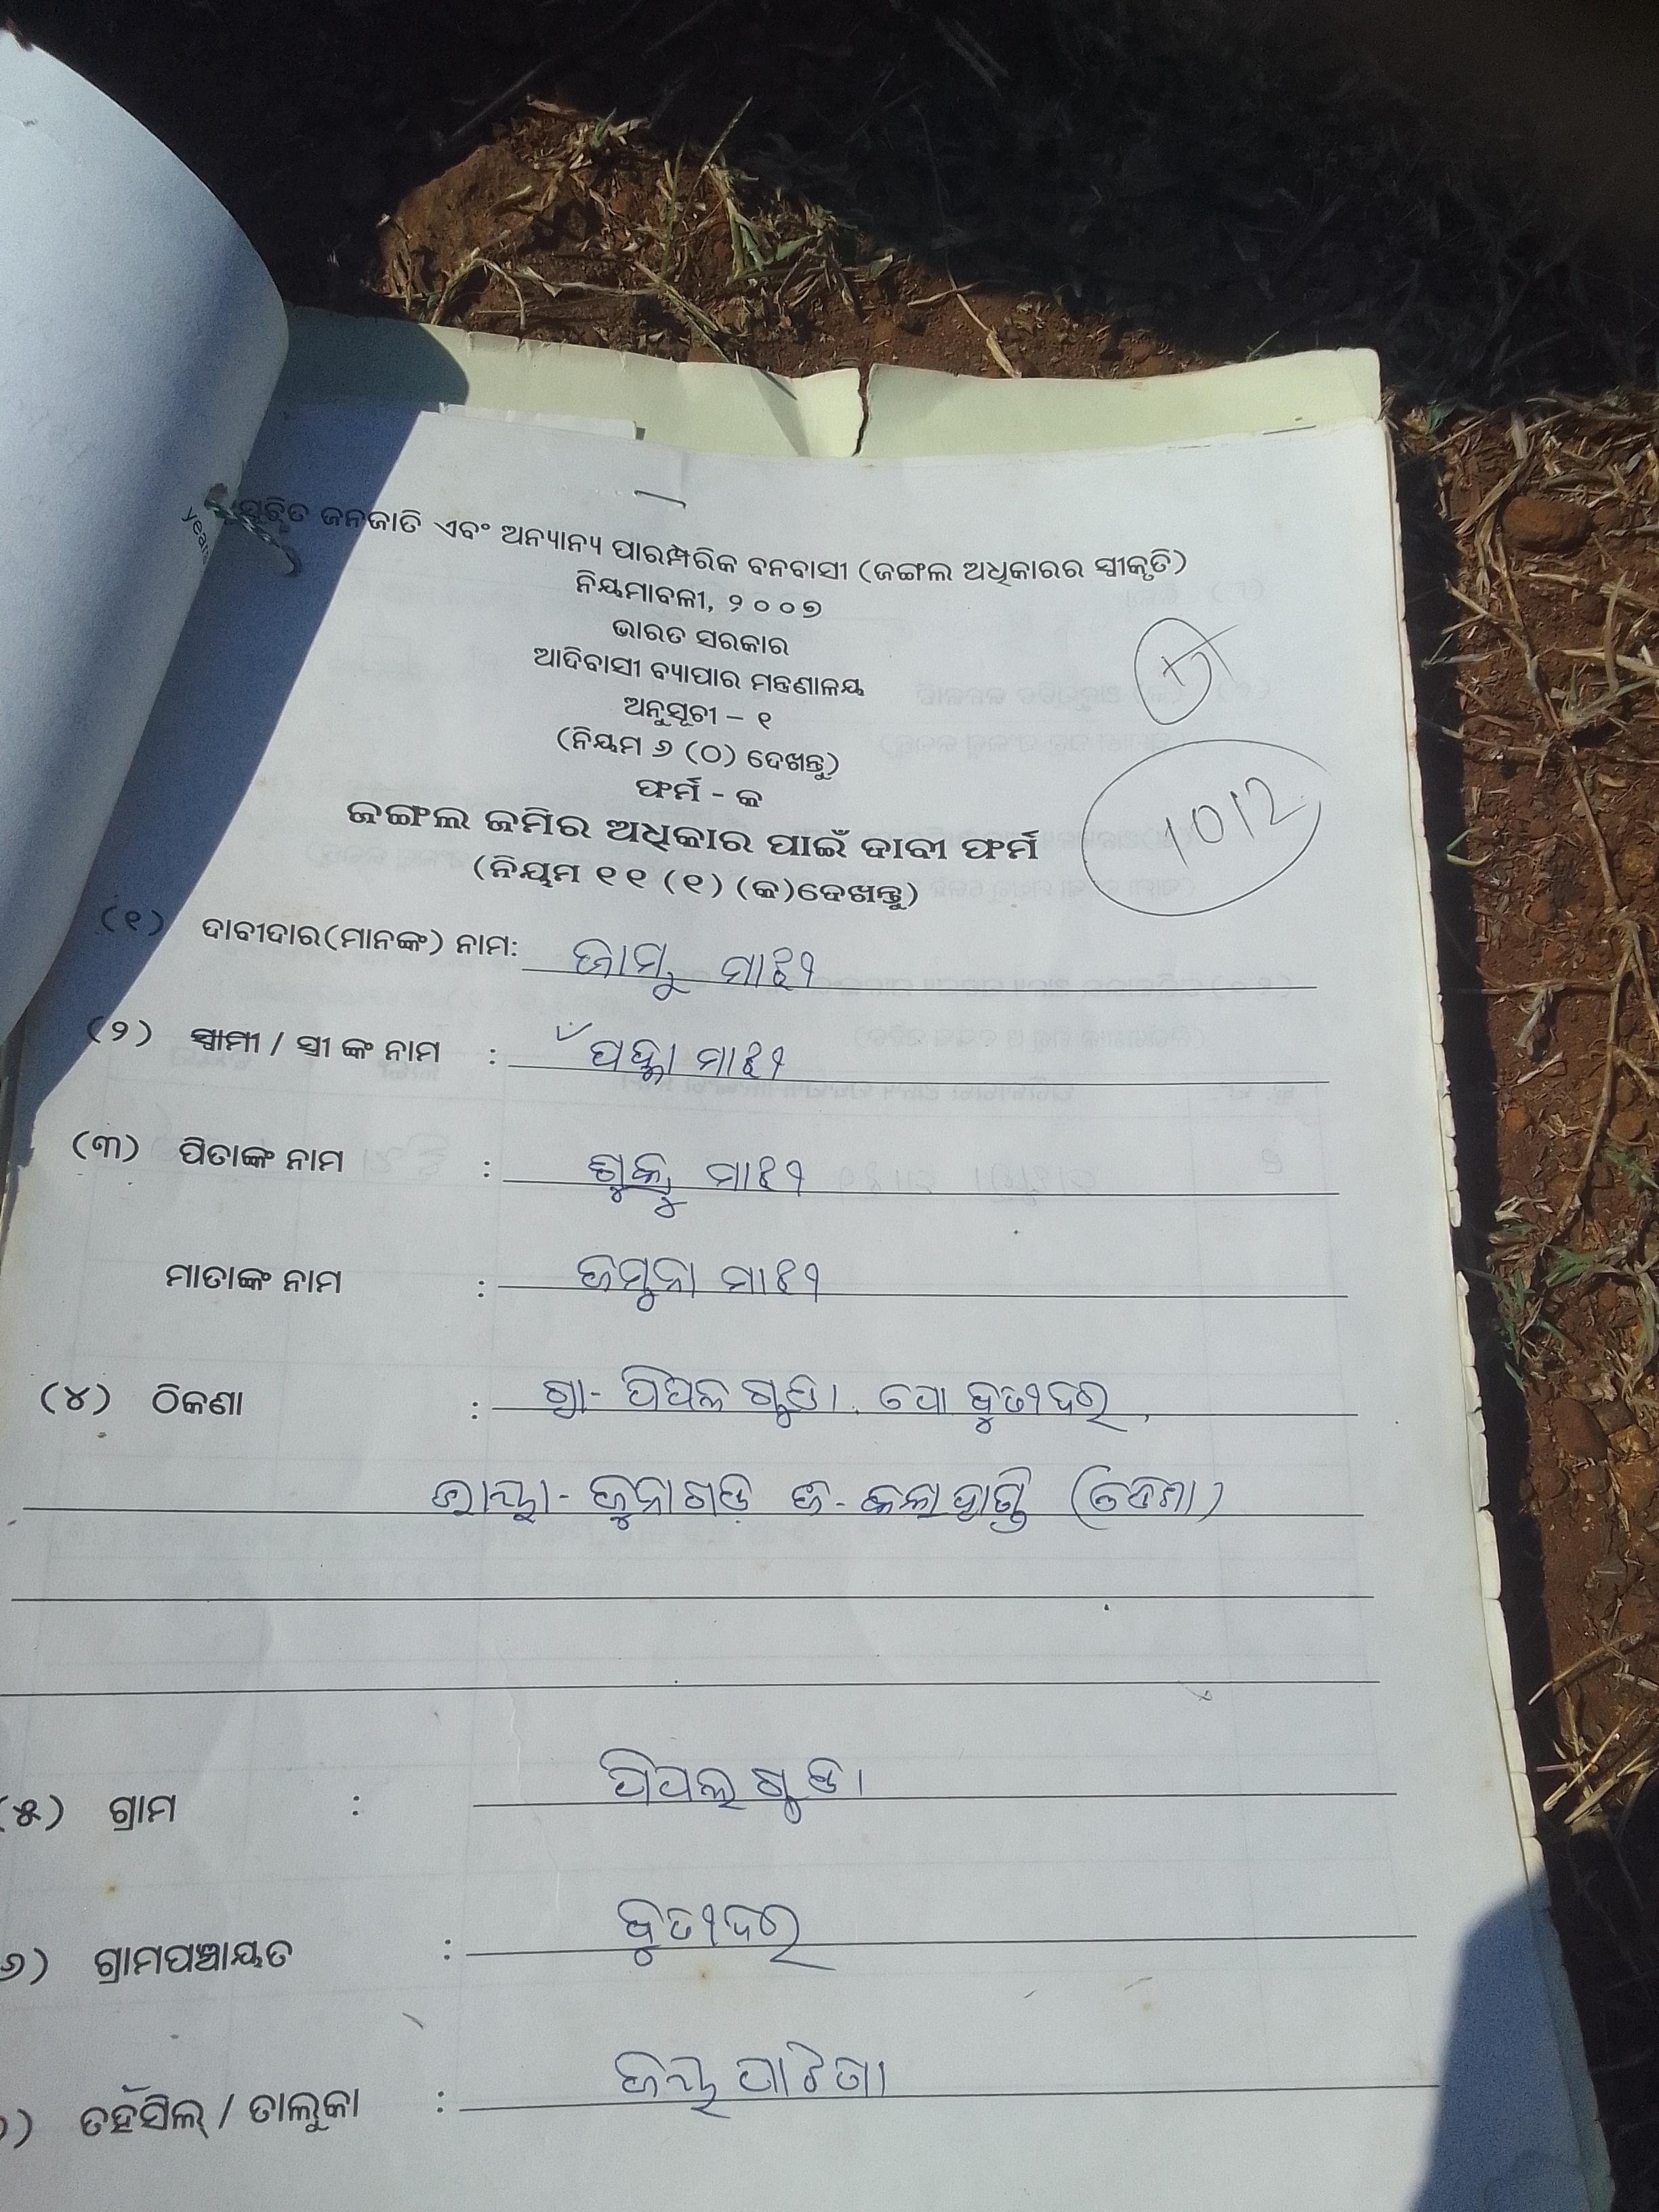 ସୂଚିତ ଜନଜାତି ଏବଂ ଅନ୍ୟାନ୍ୟ ପାରମ୍ପରିକ ବନବାସୀ (ଜଙ୍ଗଲ ଅଧିକାରର ସ୍ୱୀକୃତି)
ନିୟମାବଳୀ, ୨୦୦୭
ଭାରତ ସରକାର
ଆଦିବାସୀ ବ୍ୟାପାର ମନ୍ତ୍ରଣାଳୟ
ଅନୁସୂଚୀ – ୧
(ନିୟମ ୬ (ଠ) ଦେଖନ୍ତୁ)
ଫର୍ମ - କ
1012
ଜଙ୍ଗଲ ଜମିର ଅଧିକାର ପାଇଁ ଦାବୀ ଫର୍ମ
(ନିୟମ ୧୧ (୧) (କ)ଦେଖନ୍ତୁ)
(୧) ଦାବୀଦାର(ମାନଙ୍କ) ନାମ: ଜାମ୍ବୁ ମାଝୀ
(୨) ସ୍ୱାମୀ / ସ୍ତ୍ରୀ ଙ୍କ ନାମ : ମାଝୀ
(୩) ପିତାଙ୍କ ନାମ : ଶୁକ୍ରୁ ମାଝୀ
ମାତାଙ୍କ ନାମ : ଜମୁନା ମାଝୀ
(୪) ଠିକଣା : ଗ୍ରା- ପିପଲଗୁଡା. ପୋ
ଭାୟା- ଜୁନାଗଡ଼ ଜି- କଳାହାଣ୍ଡି
(୫) ଗ୍ରାମ : ପିପଲଗୁଡା
୬) ଗ୍ରାମପଞ୍ଚାୟତ :
) ତହଁସିଲ୍ / ତାଲୁକା : ଜୟପାଟଣା